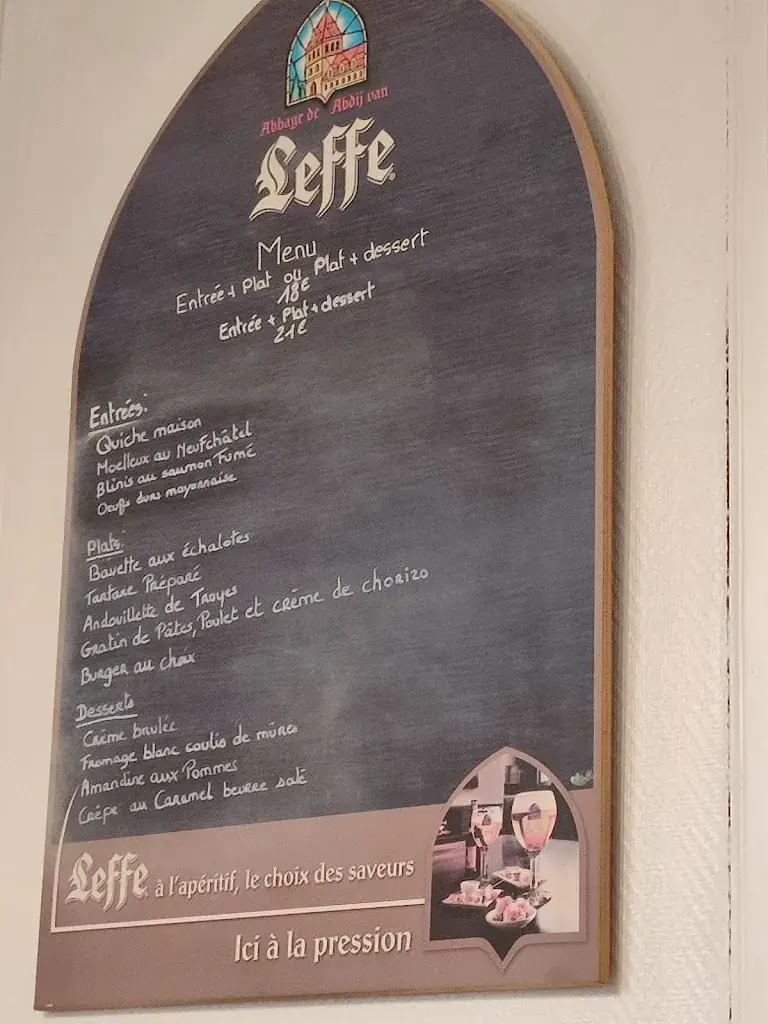 Abbaye de Abdij van
Leffe
Menu
Entrée + Plat ou Plat + dessert
18€
Entrée + Plat + dessert
21€
Entrées:
Quiche maison
Moelleux au Neufchâtel
Blinis au saumon Fumé
Oeufs durs mayonnaise
Plats:
Bavette aux échalotes
Tartare Préparé
Andouillette de Troyes
Gratin de Pâtes, Poulet et crème de chorizo
Burger au choix
Desserts
Crème brulée
Fromage blanc coulis de mûres
Amandine aux Pommes
Crêpe au Caramel beurre salé
Leffe à l'apéritif, le choix des saveurs
Ici à la pression